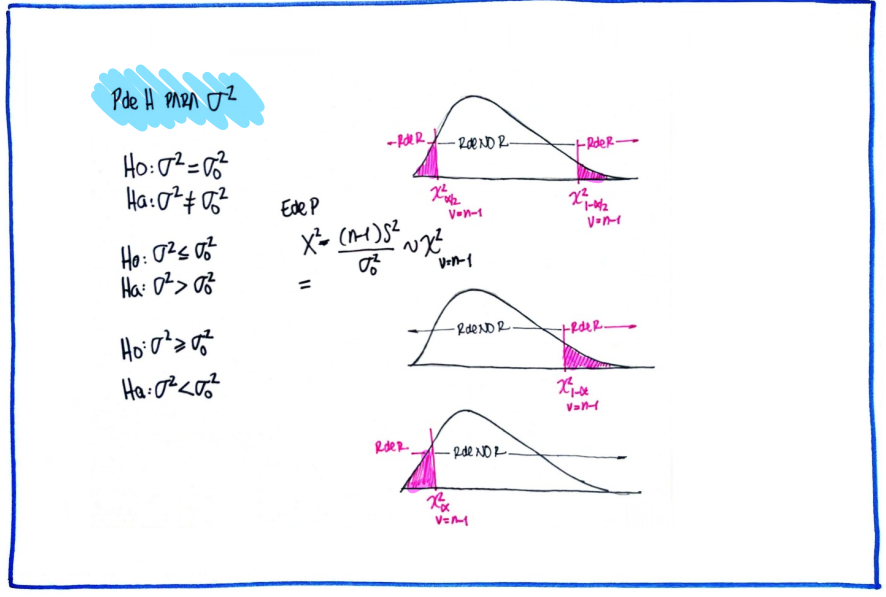 Pde H PARA σ²
H0: σ² = σ₀²
Ha: σ² ≠ σ₀²
H0: σ² ≤ σ₀²
Ha: σ² > σ₀²
H0: σ² ≥ σ₀²
Ha: σ² < σ₀²
EdeP
X² = (n-1)S² / σ₀² ~ χ² v=n-1
=
RdeR RdeNOR RdeR
χ²α/2 v=n-1
χ²1-α/2 v=n-1
RdeNOR RdeR
χ²1-α v=n-1
RdeR RdeNOR
χ²α v=n-1